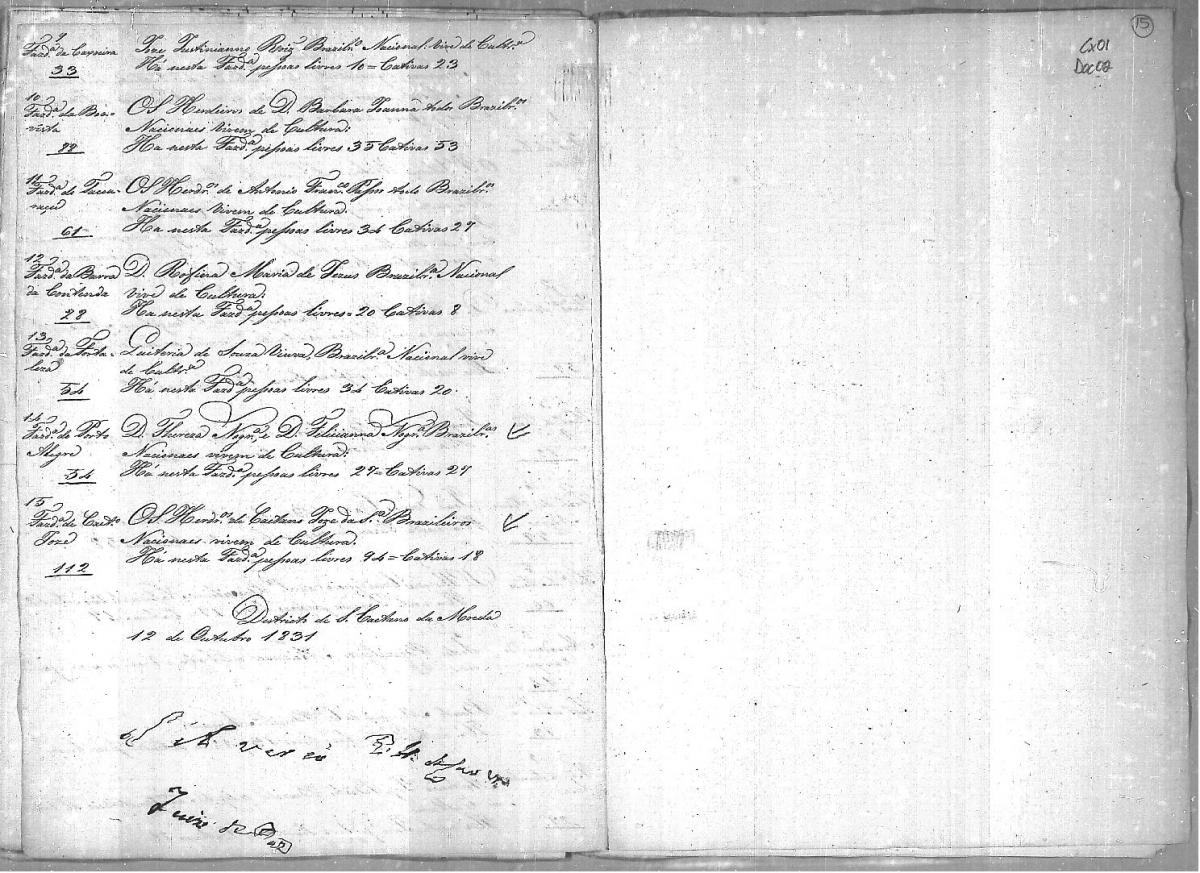 9
Fazd.ª da Carreira
33
Joze Justinianno Roiz Brazilr.º Nacional. vive de Cultr.ª
Há nesta Fazd.ª pessoas livres 10 = Cativas 23
10
Fazd.ª da Boa-
vista
88
OS Herdeiros de D. Barbara Joanna Brazilr.os
Nacionaes vivem de Cultura:
Ha nesta Fazd.ª pessoas livres 35 Cativas 53
11
Fazd.ª de
61
OS Herdr.os de Antonio Franc.co Brazilr.os
Nacionaes vivem de Cultura.
Ha nesta Fazd.ª pessoas livres 34 Cativas 27
12
Fazd.ª da Barra
da Contenda
28
D. Maria de Jezus Brazilr.ª Nacional
vive de Cultura:
Ha nesta Fazd.ª pessoas livres = 20 Cativas 8
13
Fazd.ª da Forta-
leza
54
Quiteria de Souza Viuva, Brazilr.ª Nacional vive
de Cultr.ª
Há nesta Fazd.ª pessoas livres 34 Cativas 20
14
Fazd.ª de Porto
Alegre
54
D. Thereza Nogr.ª, e D. Felicianna Nogr.ª Brazilr.as
Nacionaes vivem de Cultura:
Há nesta Fazd.ª pessoas livres 27 = Cativas 27
15
Fazd.ª de Caet.º
Joze
112
OS Herdr.os de Caetano Joze da S.ª Brazileiros
Nacionaes vivem de Cultura.
Há nesta Fazd.ª pessoas livres 94 = Cativas 18
Districto de S. Caetano da Moeda
12 de Outubro 1831
Juiz de Paz
15
Cx01
Doc02